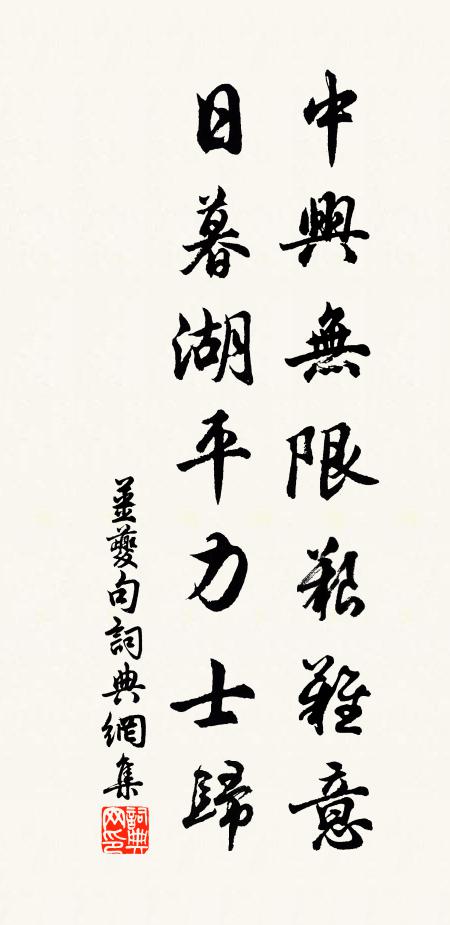 中興無限艱難意
日暮湖平力士歸
姜夔句詞典網集
詞典
网印